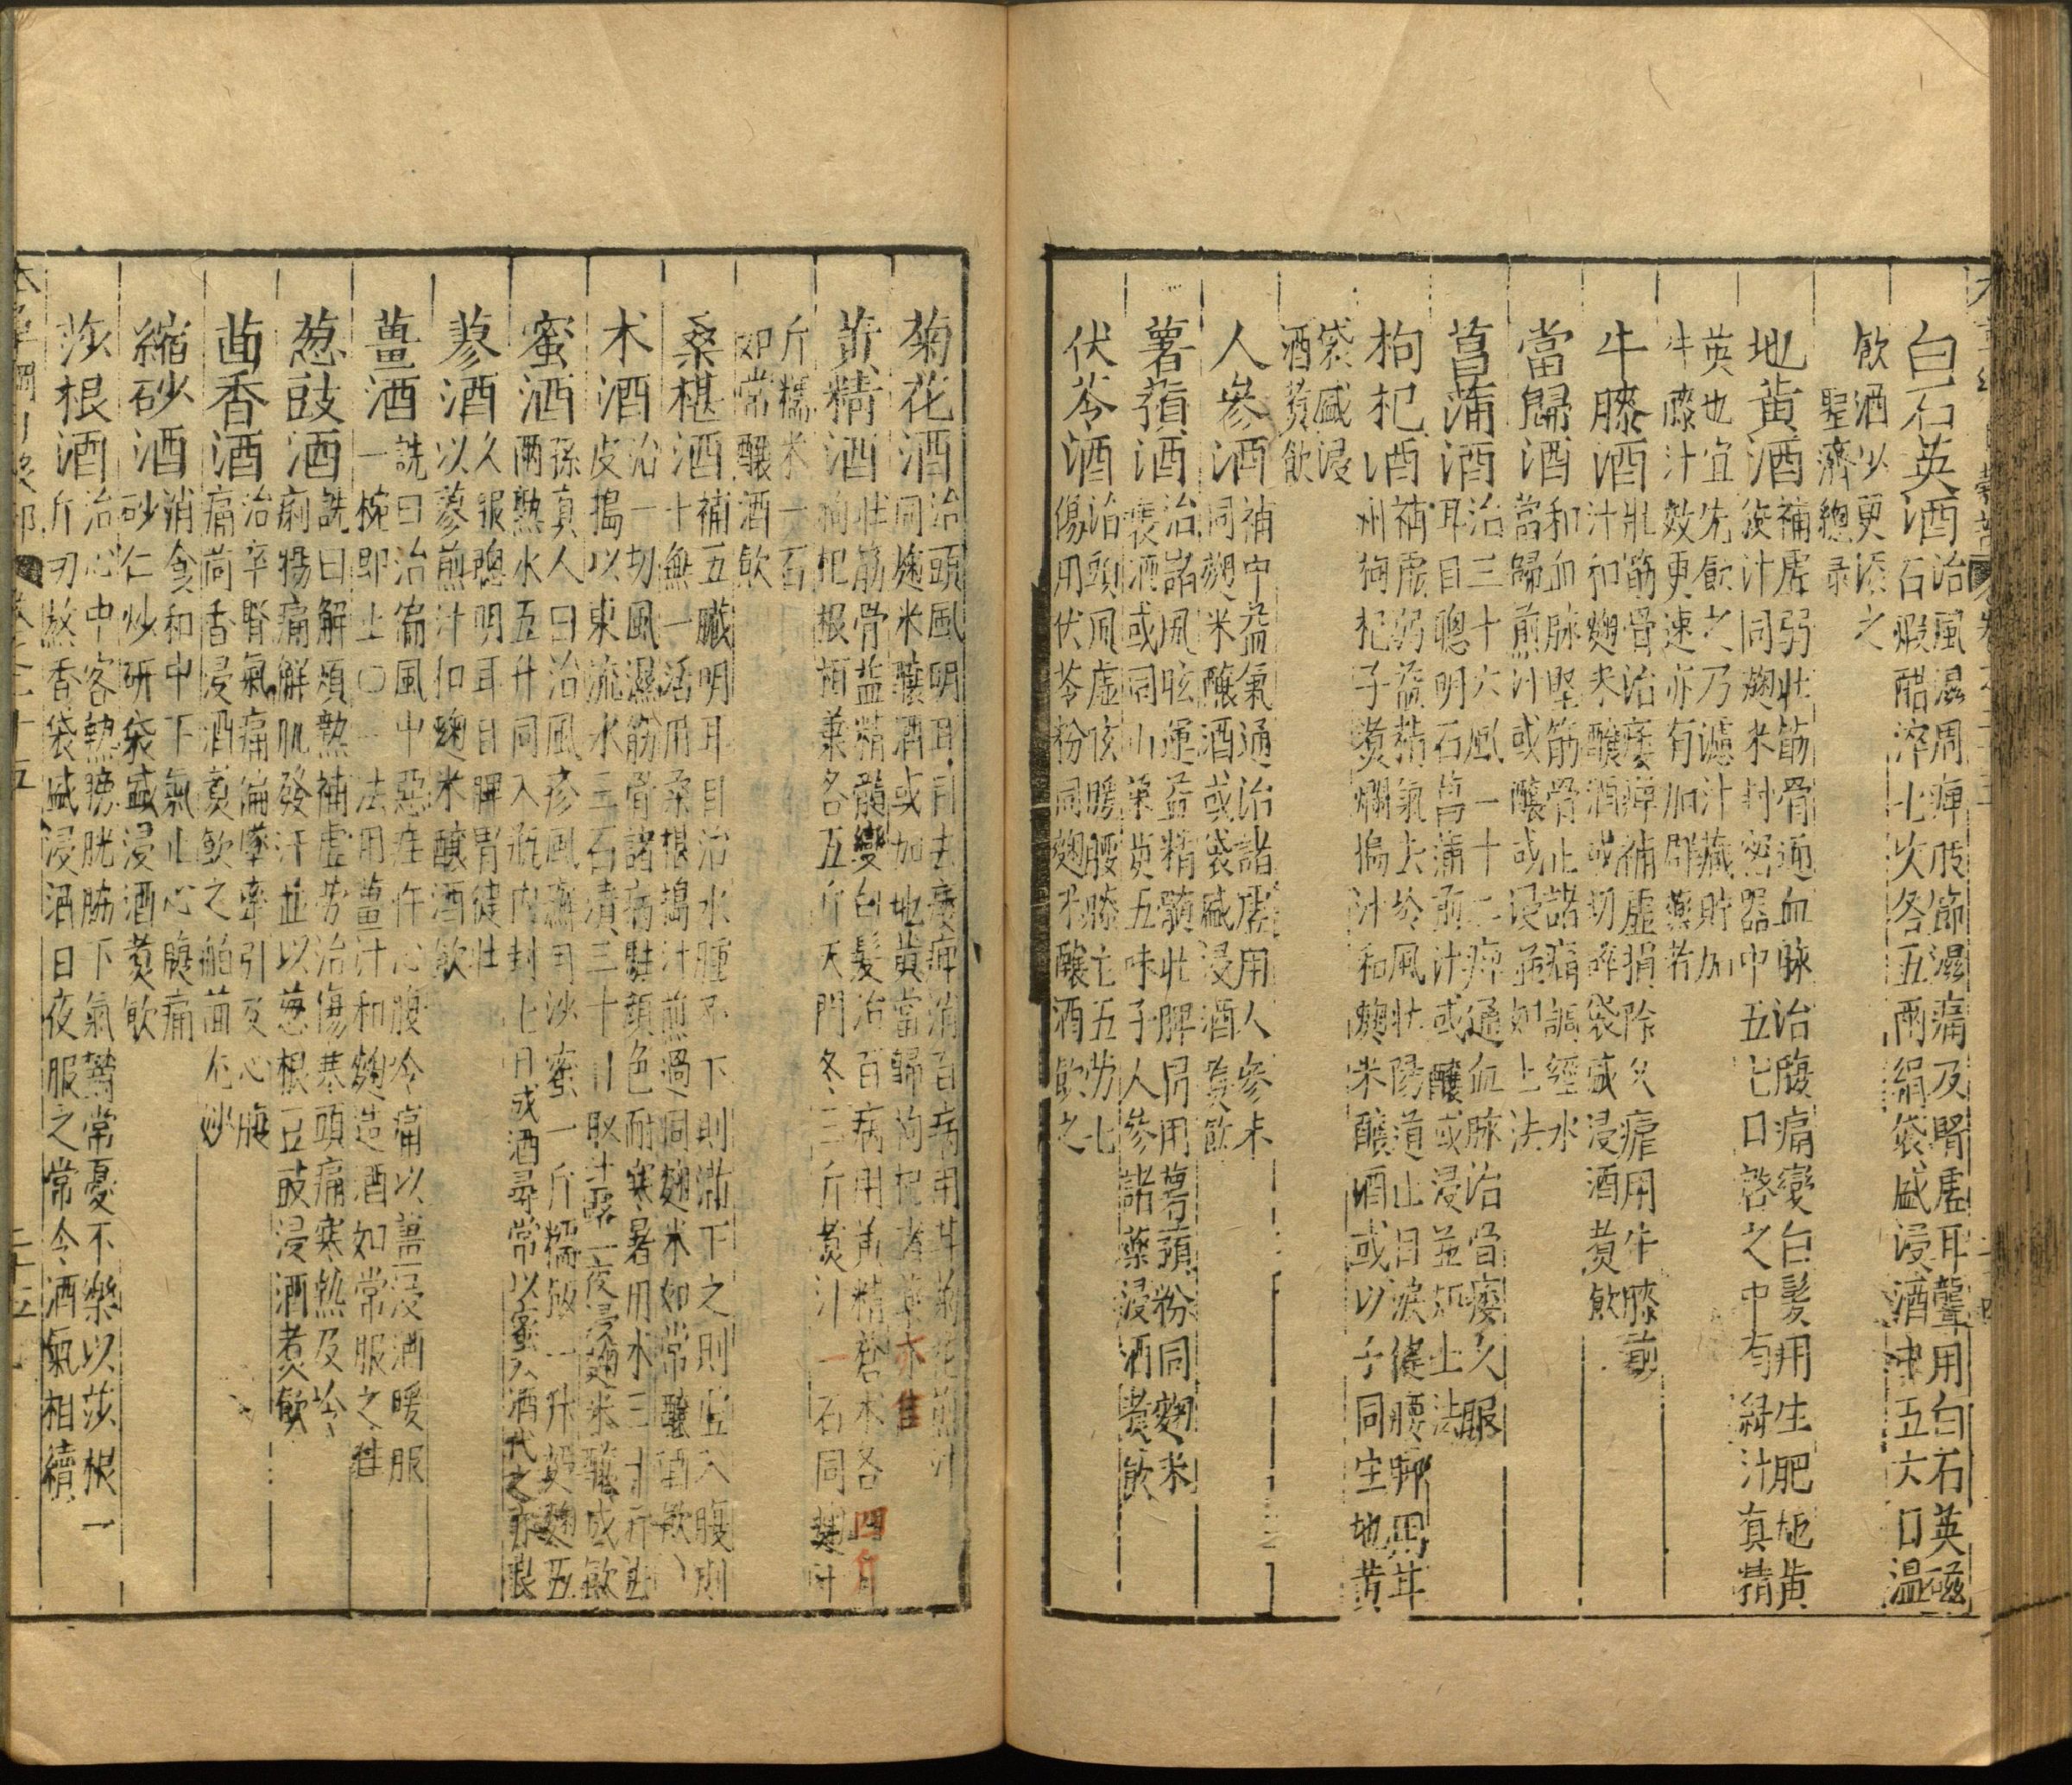 白石英酒 治風濕周痺肢節濕痛及腎虛耳聾用白石英磁
石煅醋淬七次各五兩絹袋盛浸酒中五六日溫
飲酒以更添之
聖濟總录
地黄酒 補虛弱壯筋骨通血脉治腹痛變白髮用生肥地黄
絞汁同麹米封密器中五七日啓之中有緑汁真精
英也宜先飲之乃濾汁藏貯加
牛膝汁效更速亦有加群藥者
牛膝酒 壯筋骨治痿痺補虛損除久瘧用牛膝煎
汁和麹米釀酒或切碎袋盛浸酒煑飲
當歸酒 和血脉堅筋骨止諸痛調經水
當歸煎汁或釀或浸並如上法
菖蒲酒 治三十六風一十二痺通血脉治骨痿久服
耳目聰明石菖蒲煎汁或釀或浸並如上法
枸杞酒 補虛弱益精氣去冷風壯陽道止目淚健腰脚用甘
州枸杞子煑爛搗汁和麹米釀酒或以子同生地黄
袋盛浸
酒煑飲
人參酒 補中益氣通治諸虛用人參末
同麹米釀酒或袋盛浸酒煑飲
薯蕷酒 治諸風眩運益精髓壯脾胃用薯蕷粉同麹米
釀酒或同山茱萸五味子人參諸藥浸酒煑飲
伏苓酒 治頭風虛眩暖腰膝主五勞七
傷用伏苓粉同麹米釀酒飲之
菊花酒 治頭風明耳目去痿痺消百病用甘菊花煎汁
同麹米釀酒或加地黄當歸枸杞諸藥亦佳
黄精酒 壯筋骨益精髓變白髮治百病用黄精蒼术各四斤
枸杞根栢葉各五斤天門冬三斤煑汁一石同麹十
斤糯米一石
如常釀酒飲
桑椹酒 補五臟明耳目治水腫不下則滿下之則虛入腹則
十無一活用桑椹搗汁煎過同麹米如常釀酒飲
术酒 治一切風濕筋骨諸病駐顔色耐寒暑用术三十斤去
皮搗以東流水三石漬三十日取汁露一夜浸麹米釀成飲
蜜酒 孫真人曰治風疹風癬用沙蜜一斤糯飯一升麪麹五
兩熟水五升同入瓶内封七日成酒尋常以蜜入酒代之亦良
蓼酒 久服聰明耳目脾胃健壯
以蓼煎汁和麹米釀酒飲
薑酒 詵曰治偏風中惡疰忤心腹冷痛以薑浸酒暖服
一椀即止〇一法用薑汁和麹造酒如常服之佳
葱豉酒 詵曰解煩熱補虛勞治傷寒頭痛寒熱及冷
痢腸痛解肌發汗並以葱根豆豉浸酒煑飲
茴香酒 治卒腎氣痛偏墜牽引及心腹
痛茴香浸酒煑飲之舶茴尤妙
縮砂酒 消食和中下氣止心腹痛
砂仁炒研袋盛浸酒煑飲
莎根酒 治心中客熱膀胱脇下氣鬱常憂不樂以莎根一
斤切熬香袋盛浸酒日夜服之常令酒氣相續